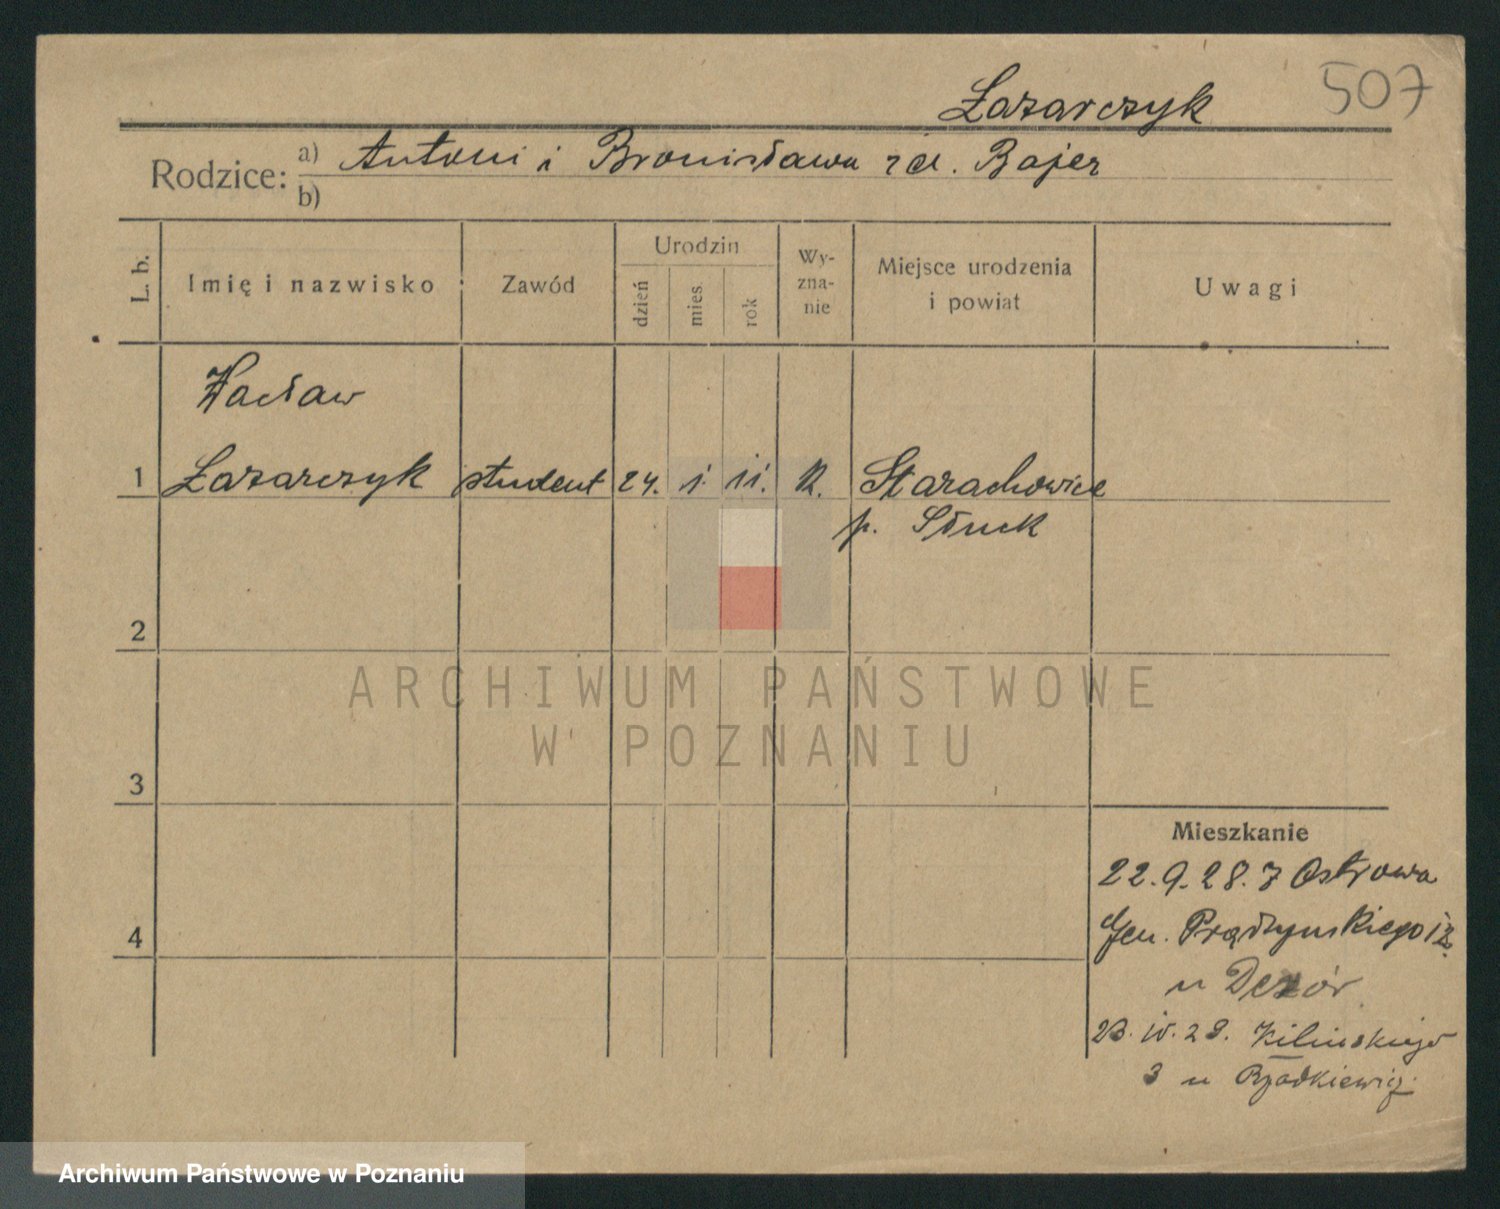 Łazarczyk 507
Rodzice: a) Antoni i Bronisława zd. Bajer
b)
L. b. Imię i nazwisko Zawód Urodzin dzień mies. rok Wy-zna-nie Miejsce urodzenia i powiat Uwagi
Wacław
1 Łazarczyk student 24. 1. 11. k. Starachowice
p. Słuck
2
ARCHIWUM PAŃSTWOWE
W POZNANIU
3
Mieszkanie
22.9.28. z Ostrowa
4 Gen. Prądzyńskiego 12.
u Dezór
23. IV. 29. Kilińskiego
3 u Rządkiewicz.
Archiwum Państwowe w Poznaniu